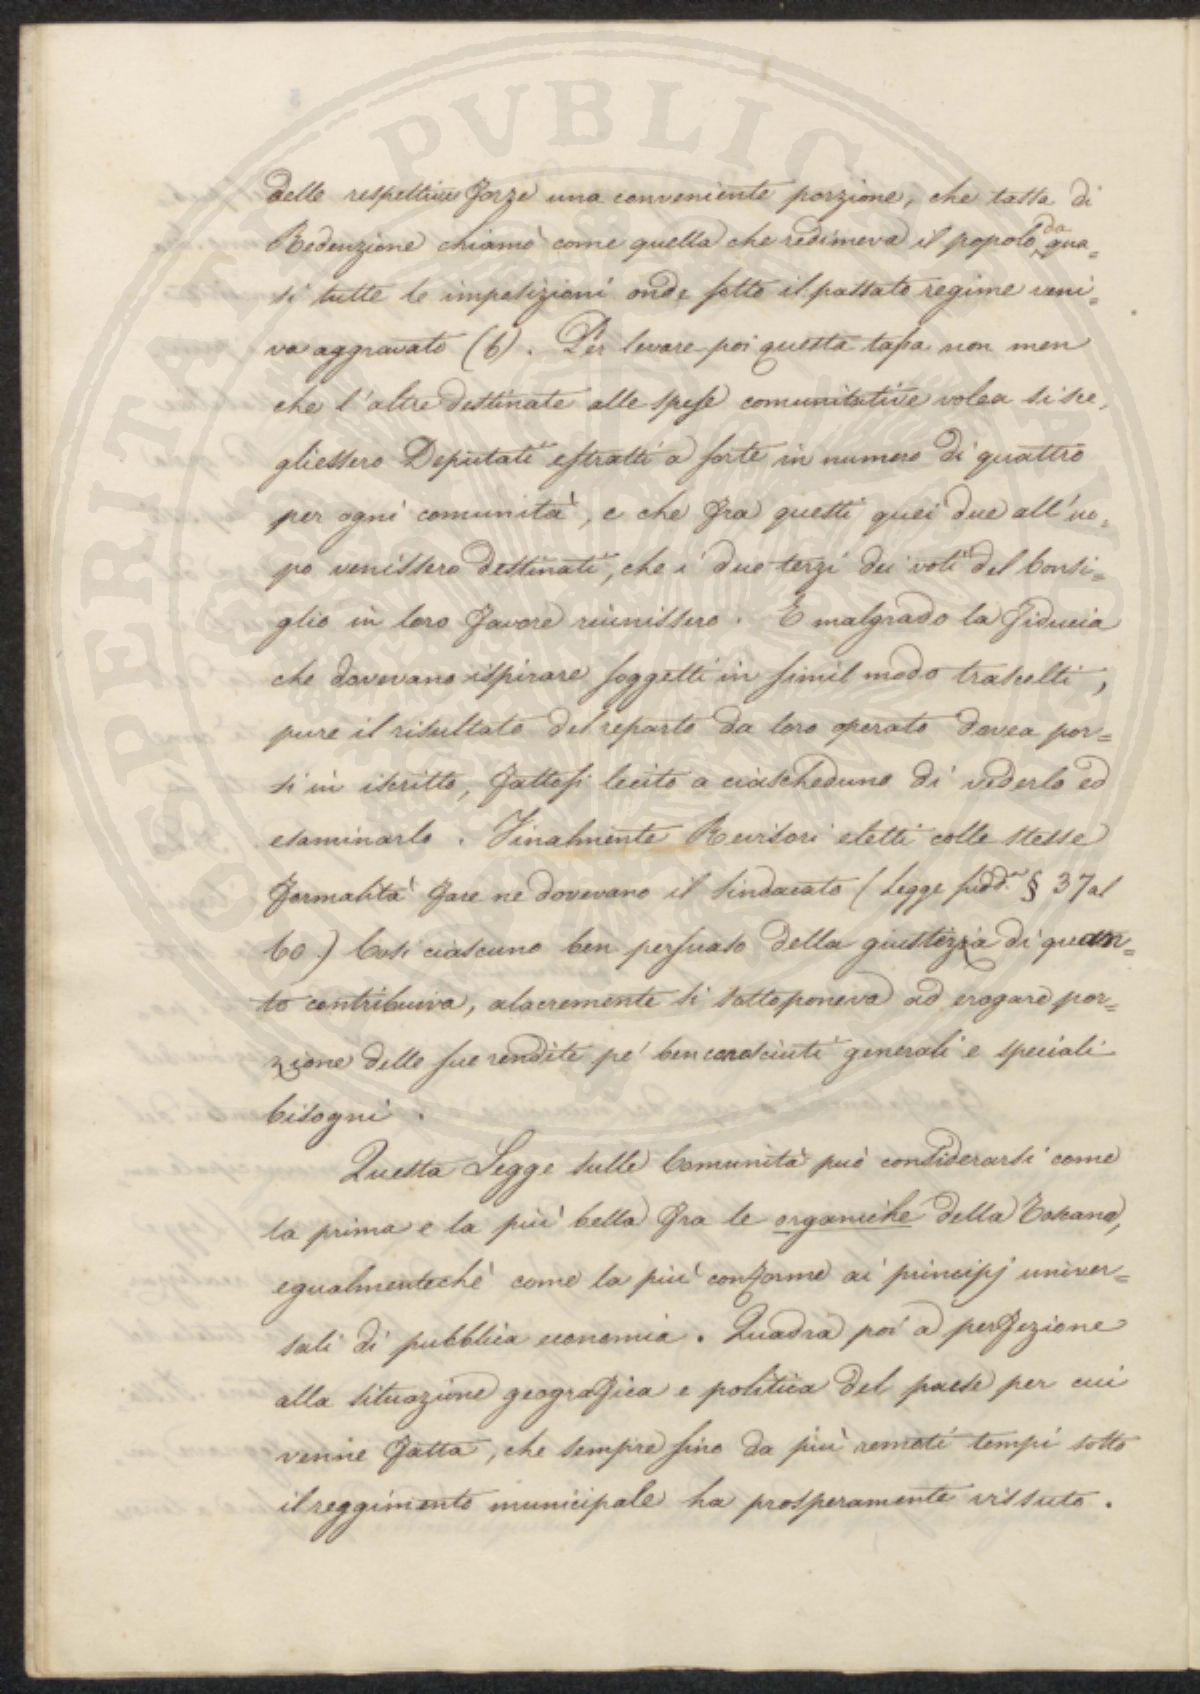 delle respettive forze una conveniente porzione, che tassa di
Redenzione chiamò come quella che redimeva il popolo da qua=
si tutte le imposizioni onde sotto il passato regime veni=
va aggravato (6). Per levare poi questa tassa non men
che l'altre destinate alle spese comunitative volea si sce=
gliessero Deputati estratti a sorte in numero di quattro
per ogni comunità, e che fra questi quei due all'uo=
po venissero destinati, che i due terzi dei voti del Consi=
glio in loro favore riunissero. E malgrado la fiducia
che dovevano ispirare soggetti in simil modo trascelti,
pure il risultato del reparto da loro operato dovea por=
si in iscritto, fattosi lecito a ciascheduno di vederlo ed
esaminarlo. Finalmente Revisori eletti colle stesse
formalità fare ne dovevano il sindacato (Legge sudd.ª § 37 al
60.) Così ciascuno ben persuaso della giustizia di quan=
to contribuiva, alacremente si sottoponeva ad erogare por=
zione delle sue rendite pe' ben conosciuti generali e speciali
bisogni.
Questa Legge sulle Comunità può considerarsi come
la prima e la più bella fra le organiche della Toscana,
egualmentechè come la più conforme ai principj univer=
sali di pubblica economia. Quadra poi a perfezione
alla situazione geografica e politica del paese per cui
venne fatta, che sempre fino da più remoti tempi sotto
il reggimento municipale ha prosperamente vissuto.
PROSPERITATI PVBLICAE